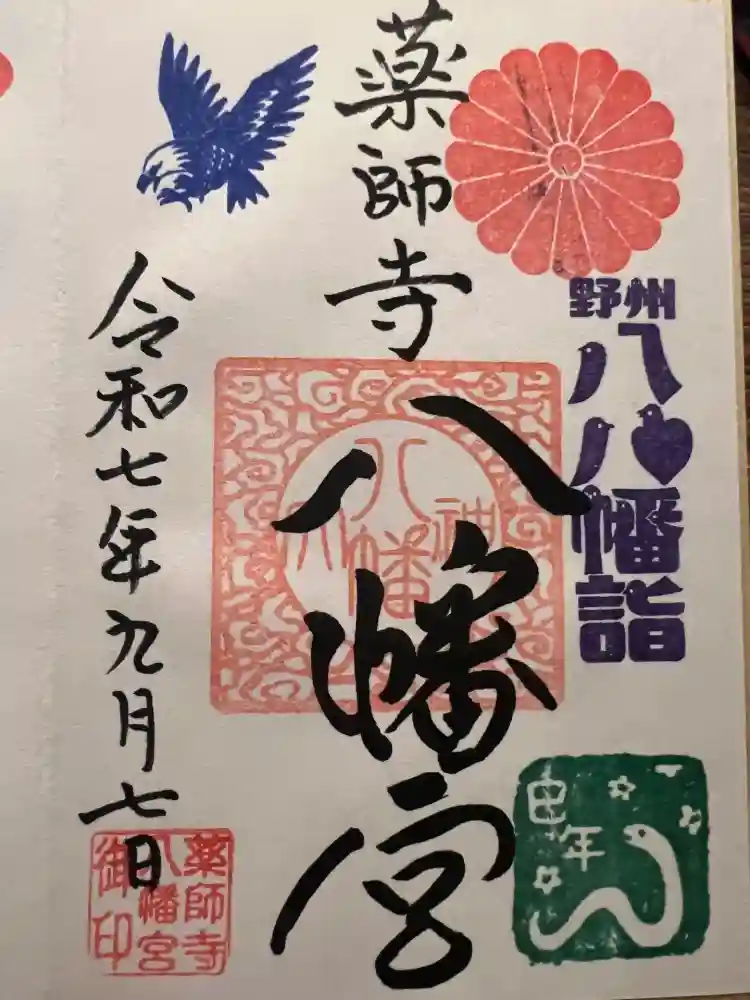 野州
八八幡詣
薬師寺
八幡宮
令和七年九月七日
八幡
神
巳年
薬師寺
八幡宮
御印